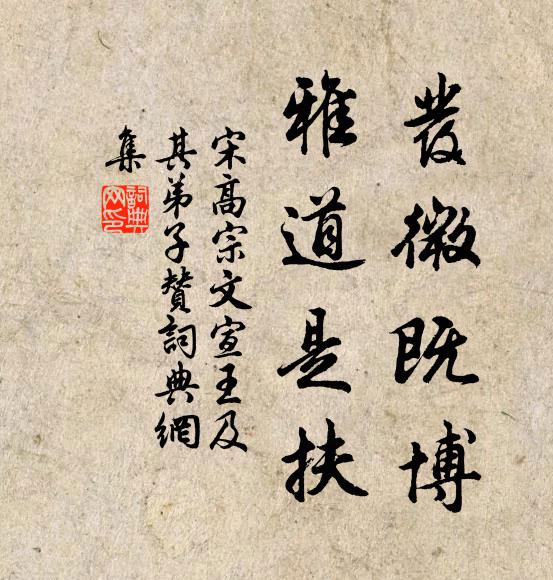 發微既博
雅道是扶
宋高宗文宣王及
其弟子贊詞典網
集
詞典网印